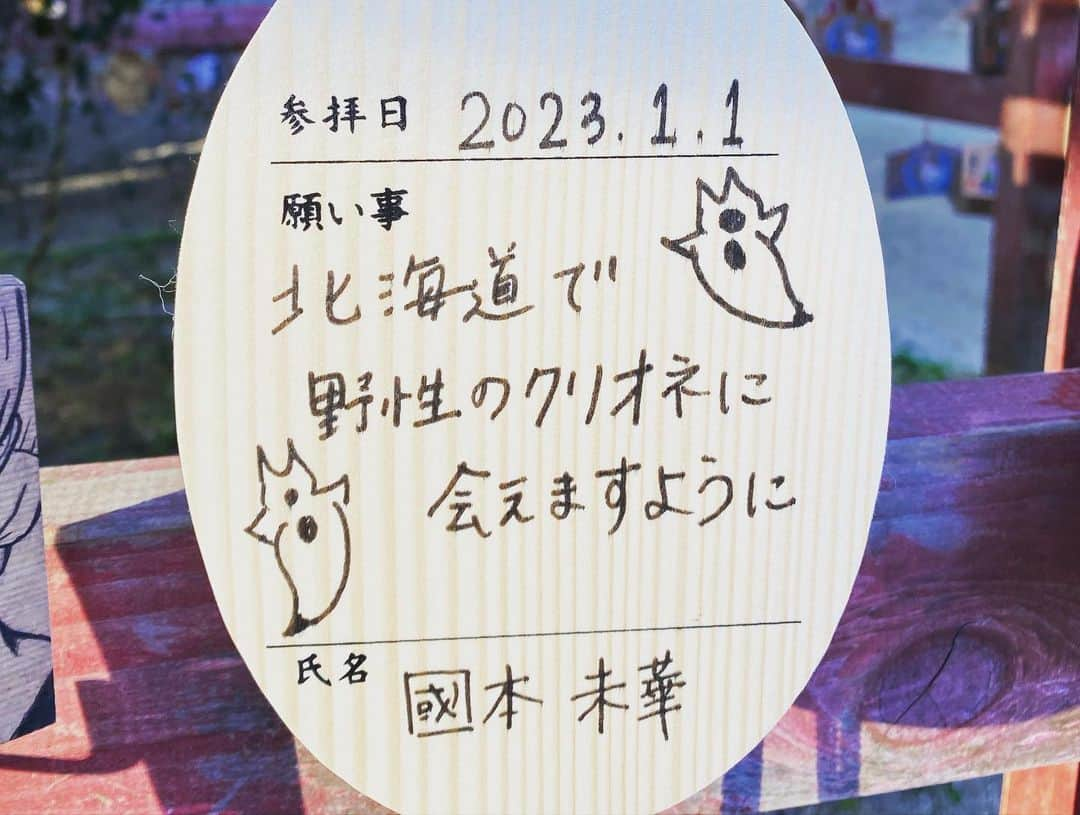 参拝日 2023.1.1
願い事
北海道で
野性のクリオネに
会えますように
氏名 國本 未華